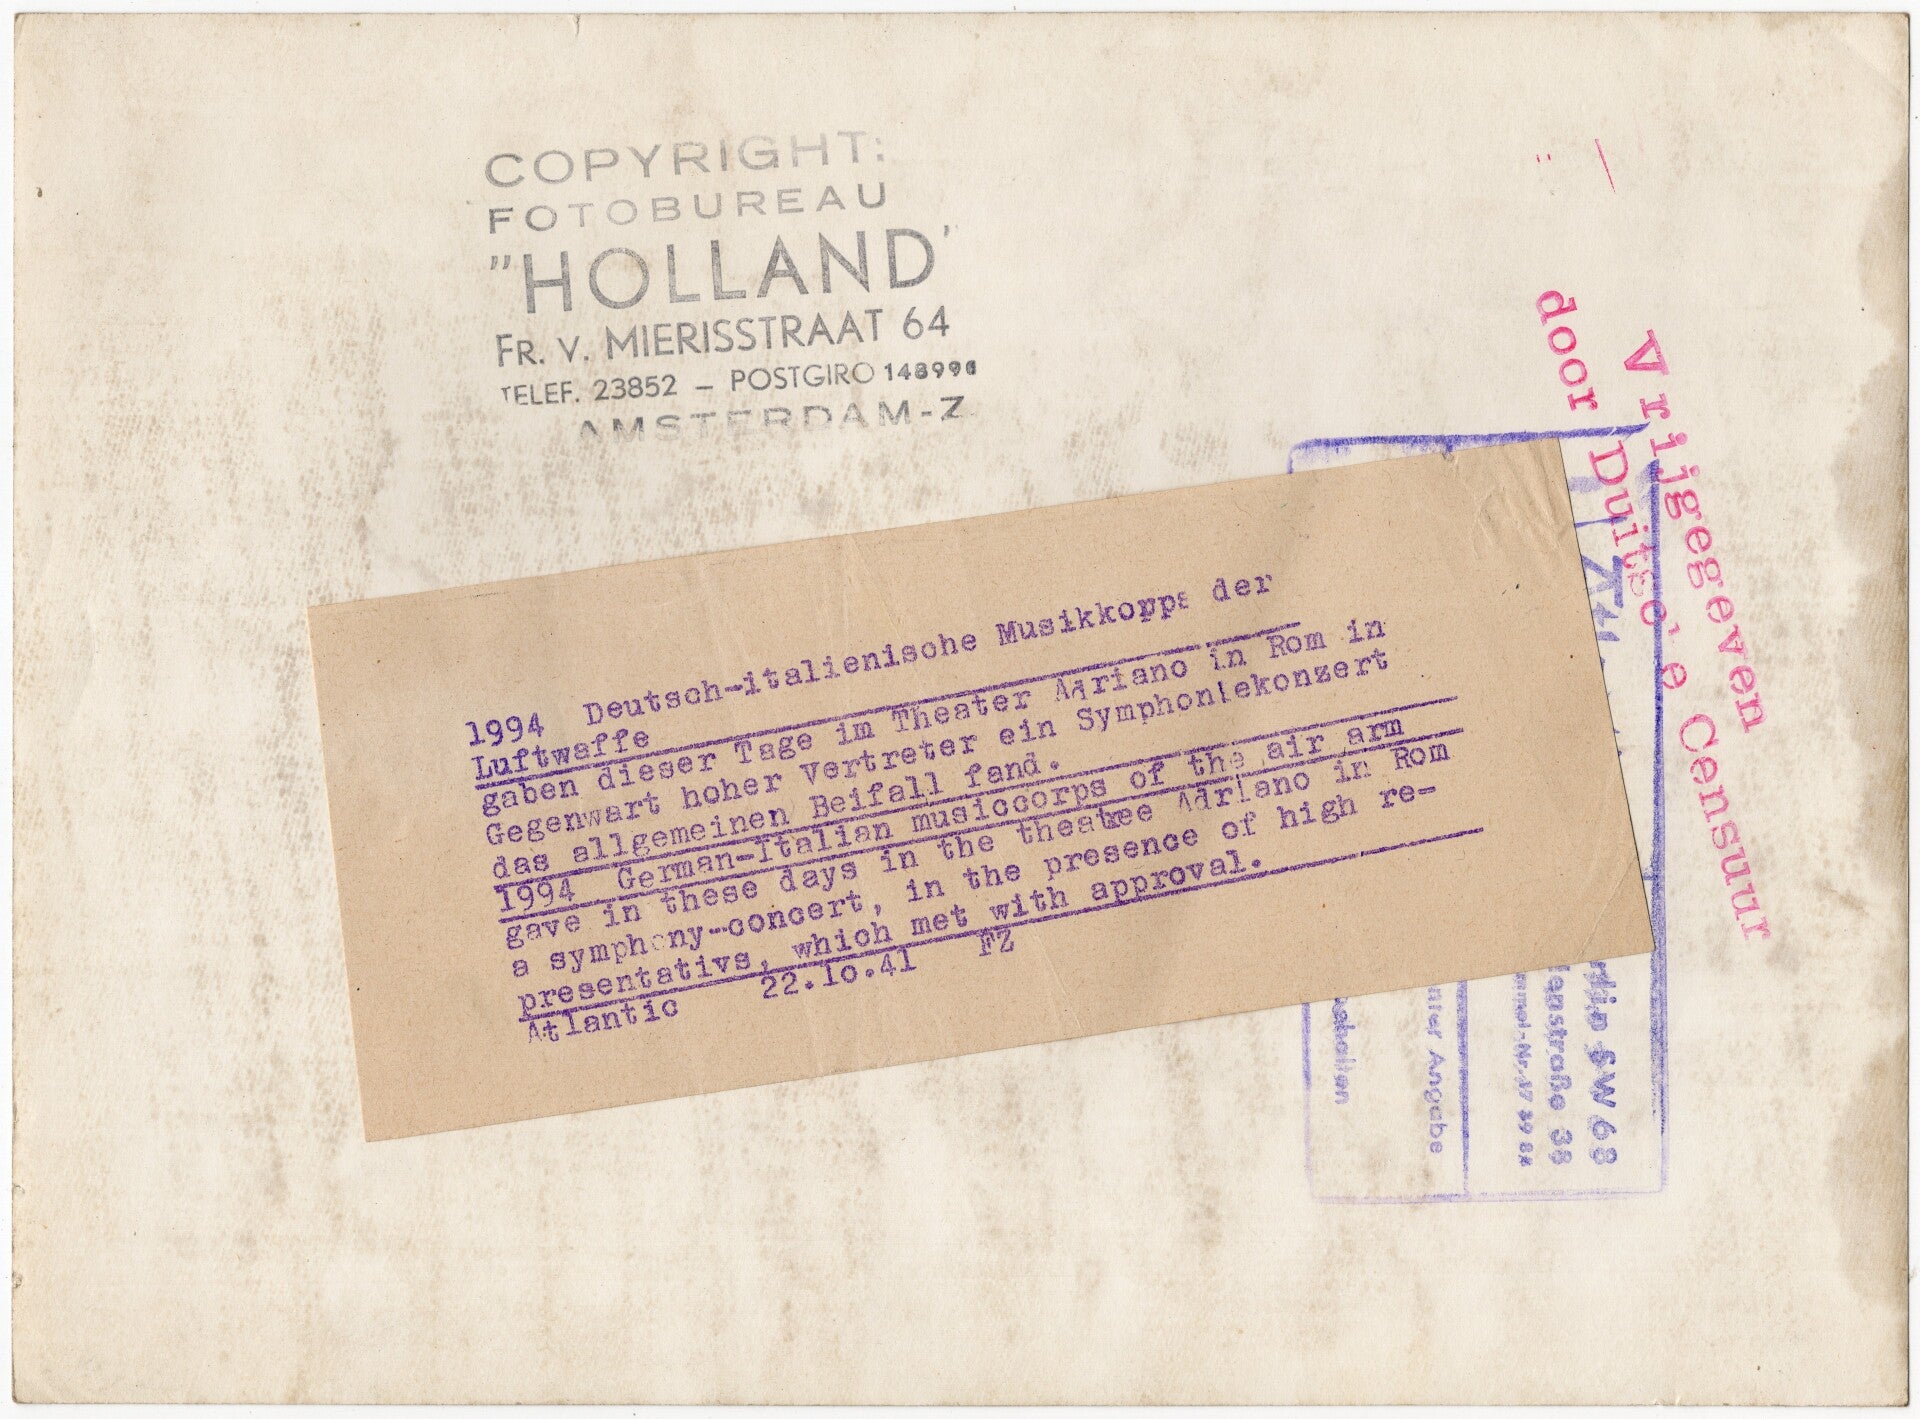 COPYRIGHT:
FOTOBUREAU
"HOLLAND"
FR. V. MIERISSTRAAT 64
TELEF. 23852 – POSTGIRO 148996
AMSTERDAM-Z.
Vrijgegeven
door Duitsche Censuur
1994 Deutsch-italienische Musikkopps der
Luftwaffe
gaben dieser Tage im Theater Adriano in Rom in
Gegenwart hoher Vertreter ein Symphoniekonzert
das allgemeinen Beifall fand.
1994 German-Italian musiccorps of the air arm
gave in these days in the theatree Adriano in Rom
a symphony-concert, in the presence of high re-
presentativs, which met with approval.
Atlantic 22.10.41 FZ
rlin SW 68
enstraße 38
mmel-Nr. 17
nter Angabe